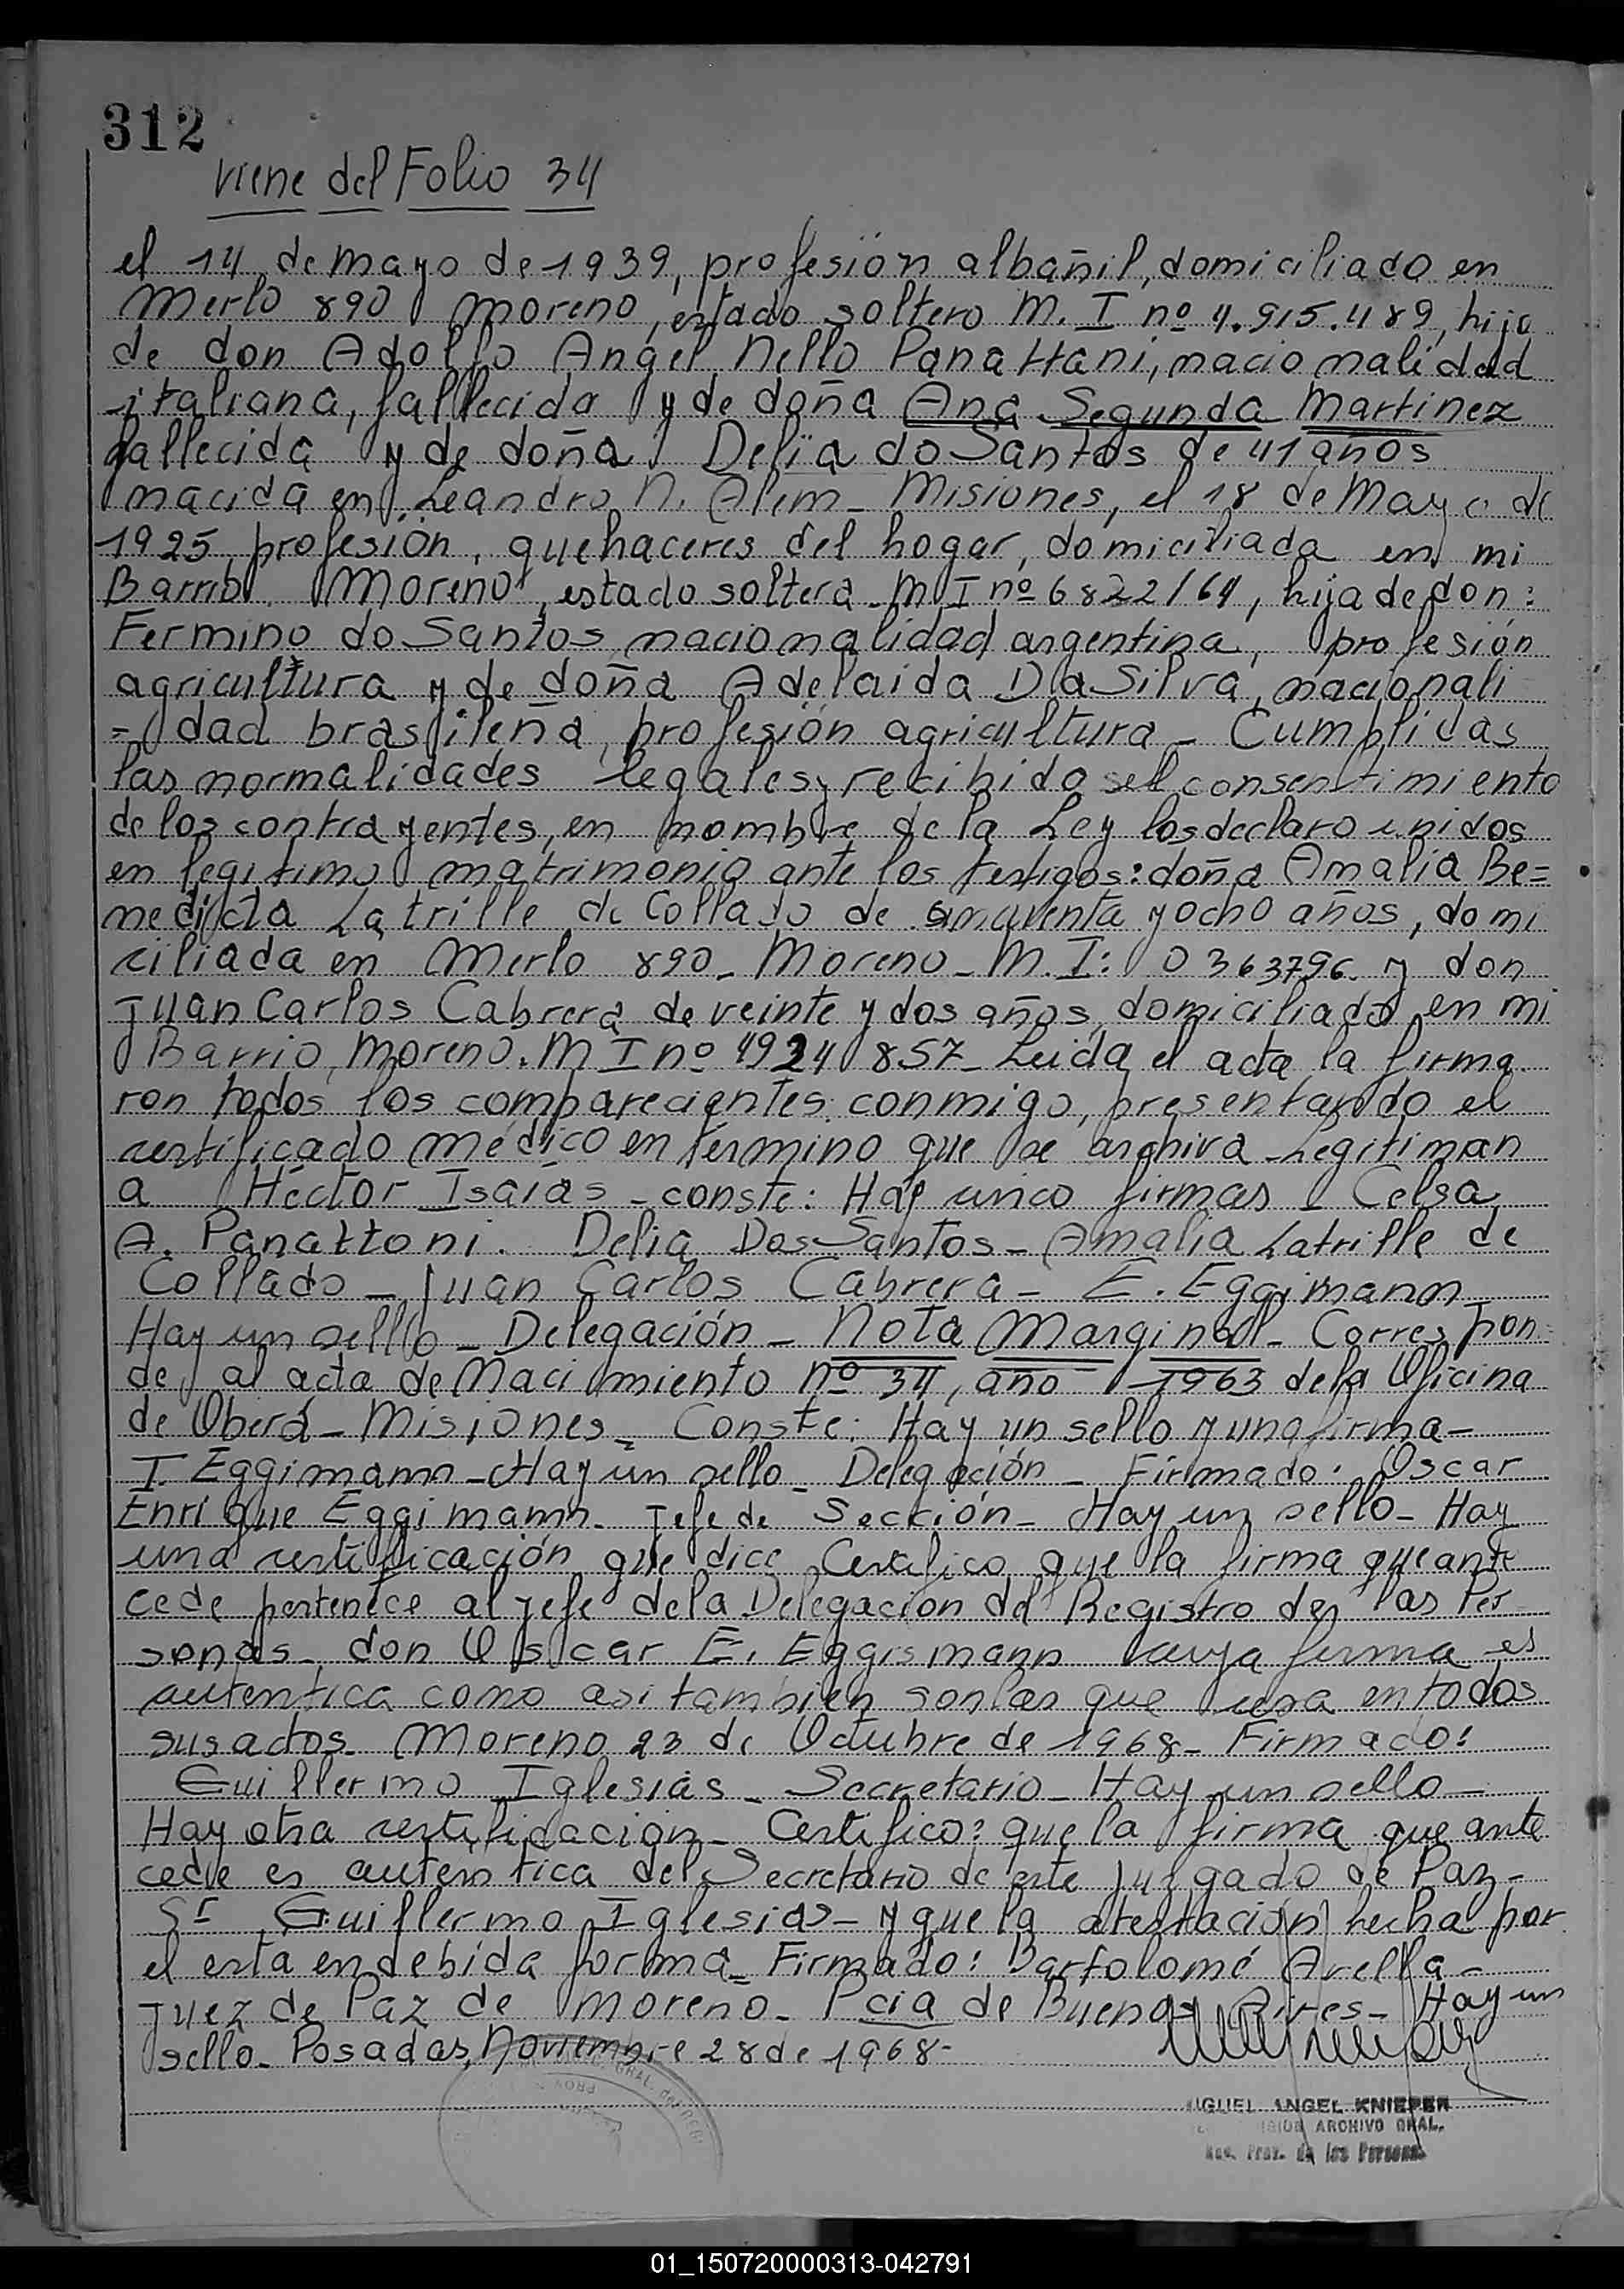 312
viene del Folio 34
el 14 de mayo de 1939, profesión albañil, domiciliado en
Merlo 890 Moreno, estado soltero M. I nº 4.915.489, hijo
de don Adolfo Angel Nello Panattani, nacionalidad
italiana, fallecido y de doña Ana Segunda Martinez
fallecida y de doña Delia do Santos de 41 años
nacida en Leandro N. Alem - Misiones, el 18 de Mayo de
1925, profesión, quehaceres del hogar, domiciliada en mi
Barrio Moreno, estado soltera - M I nº 6822164, hija de don:
Fermino do Santos nacionalidad argentina, profesión
agricultura y de doña Adelaida Da Silva, nacionali
= dad brasileña, profesión agricultura - Cumplidas
las normalidades legales y recibido el consentimiento
de los contrayentes, en nombre de la Ley los declaro unidos
en legitimo matrimonio ante los testigos: doña Amalia Be=
nedicta Latrille de Collado de y ocho años, domi
ciliada en Merlo 890 - Moreno - M. I: 0363796 y don
Juan Carlos Cabrera de veinte y dos años, domiciliado en mi
Barrio, Moreno. M I nº 4924857 - Leida el acta, la firma
ron todos los comparecientes conmigo, presentando el
certificado médico en término que se archiva - Legitiman
a Héctor Isaías - conste: Hay cinco firmas - Celsa
A. Panattoni. Delia Dos Santos - Amalia Latrille de
Collado - Juan Carlos Cabrera - E. Eggimann
Hay un sello - Delegación - Nota Marginal - Correspon
de al acta de Nacimiento nº 34, año 1963 de la Oficina
de Oberá - Misiones - Conste: Hay un sello y una firma -
I. Eggimann - Hay un sello - Delegación - Firmado: Oscar
Enrique Eggimann - Jefe de Sección - Hay un sello - Hay
una certificación que dice Certifico que la firma que ante
cede pertenece al jefe de la Delegación del Registro de las Per
sonas, don Oscar E. Eggismann cuya firma es
autentica como asi tambien son las que usa en todos
sus actos - Moreno 23 de Octubre de 1968 - Firmado:
Guillermo Iglesias - Secretario - Hay un sello -
Hay otra certificación - Certifico: que la firma que ante
cede es autentica del Secretario de este Juzgado de Paz -
Sr Guillermo Iglesias - y que la atestación hecha por
el esta en debida forma - Firmado: Bartolomé Arella -
Juez de Paz de Moreno - Pcia de Buenos Aires - Hay un
sello - Posadas, Noviembre 28 de 1968 -
MIGUEL ANGEL KNIEPER
DIVISION ARCHIVO GRAL.
Reg. Prov. de las Personas
01_150720000313-042791